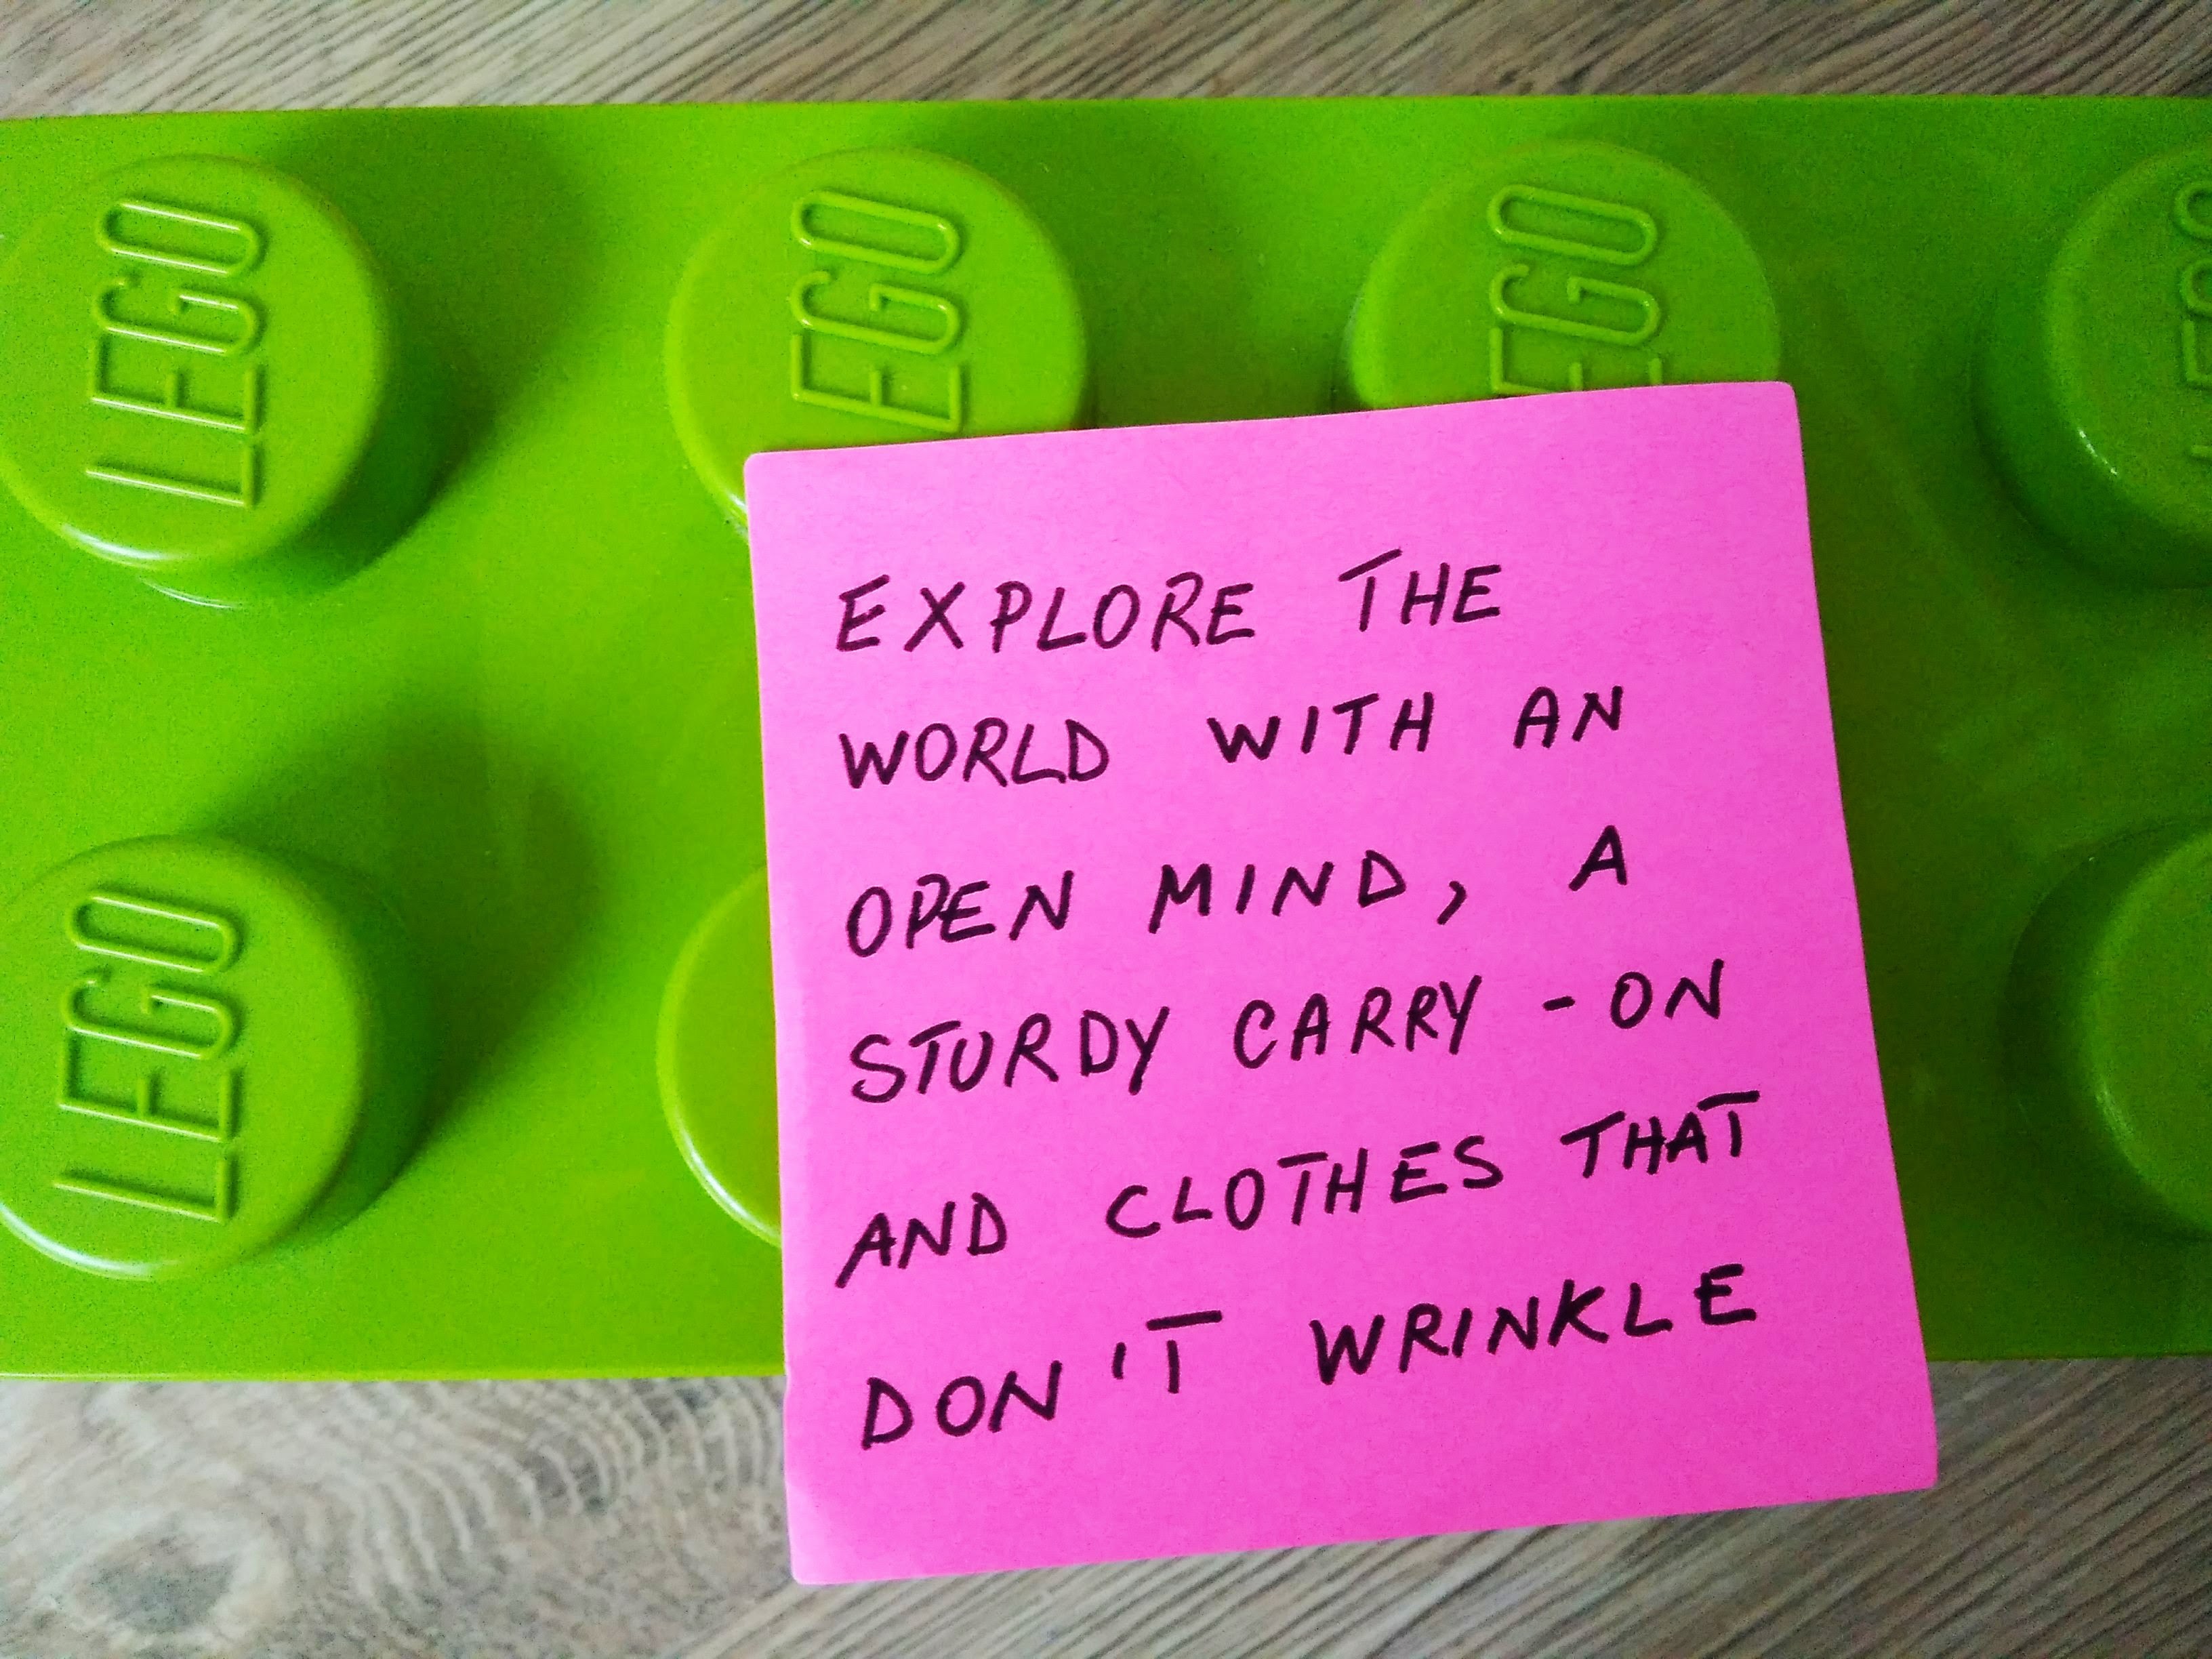 LEGO
LEGO
EGO
EGO
EXPLORE THE
WORLD WITH AN
OPEN MIND, A
STURDY CARRY-ON
AND CLOTHES THAT
DON'T WRINKLE
LEGO